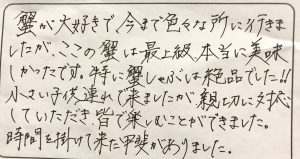 蟹が大好きで、今まで色々な所に行きま
したが、ここの蟹は最上級、本当に美味
しかったです。特に蟹しゃぶは絶品でした!!
小さい子供連れで来ましたが親切に対応
していただき皆で楽しむことができました。
時間を掛けて来た甲斐がありました。